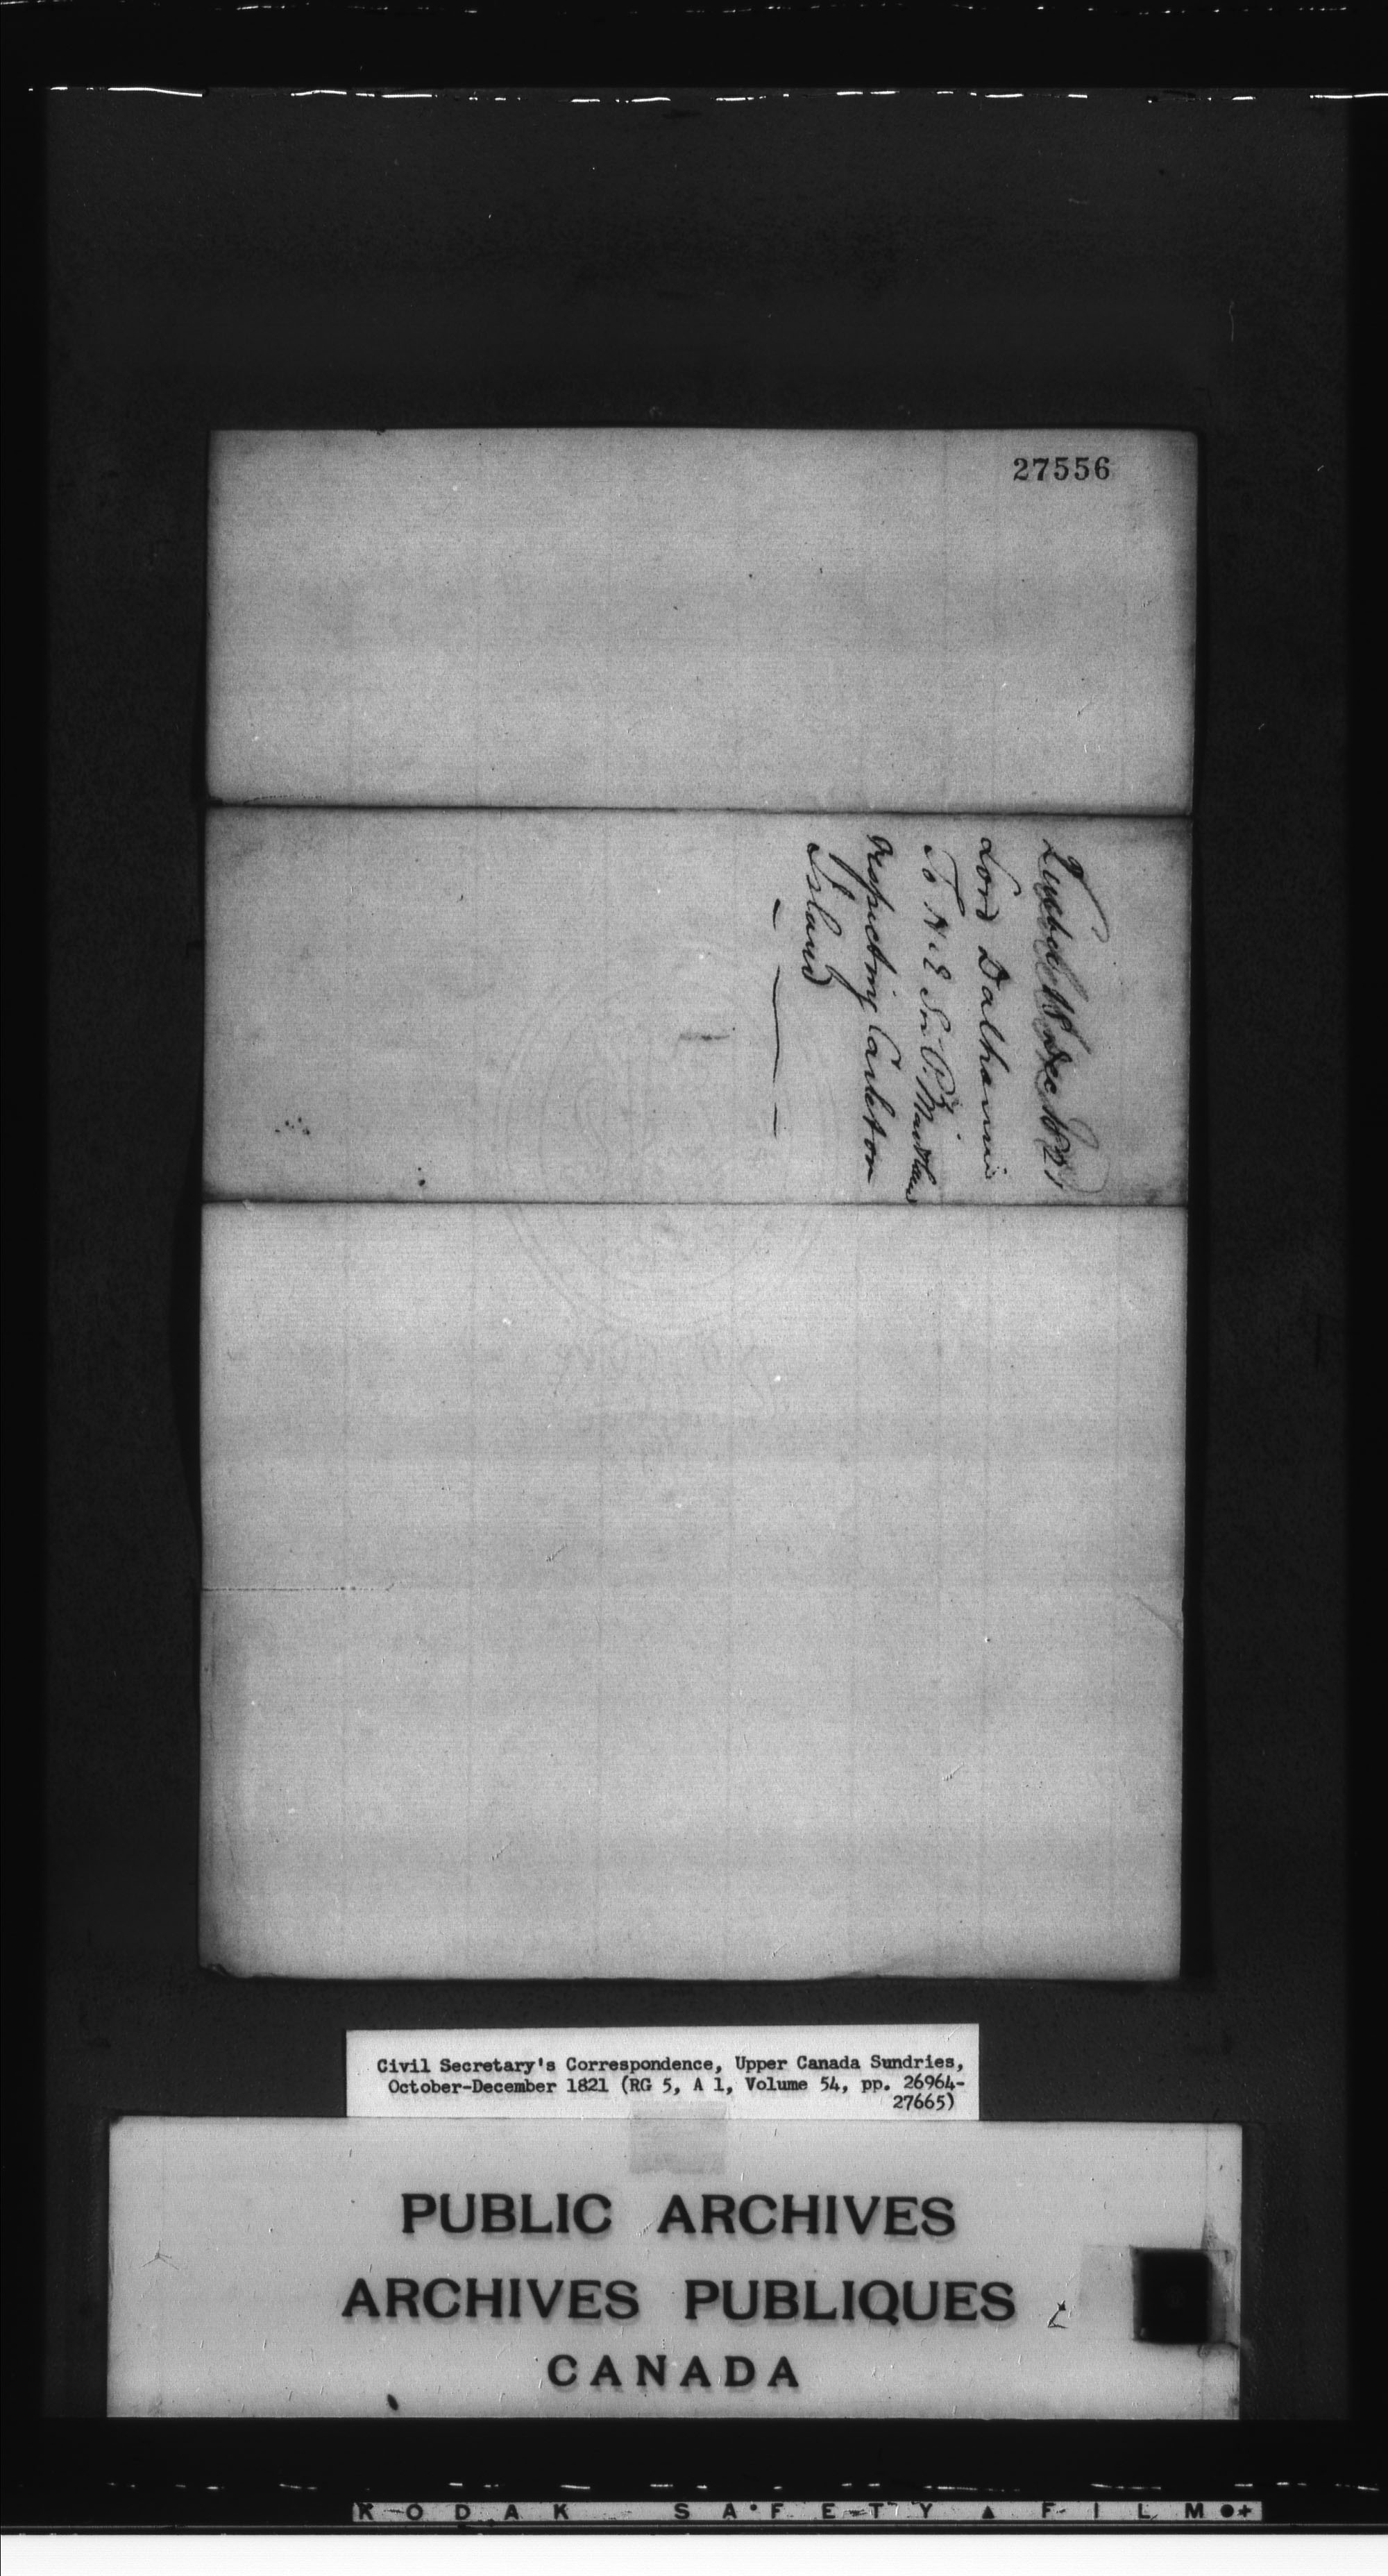 27556
Quebec 18 Dec 1821
Lord Dalhousie
To H. E. Sir P. Maitland
respecting Carleton
Island
Civil Secretary's Correspondence, Upper Canada Sundries,
October-December 1821 (RG 5, A 1, Volume 54, pp. 26964-
27665)
PUBLIC ARCHIVES
ARCHIVES PUBLIQUES
CANADA
KODAK SAFETY FILM